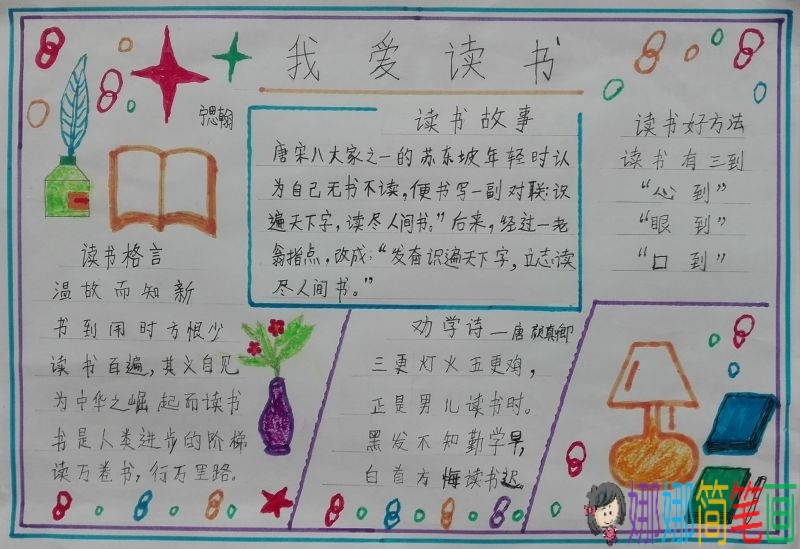 我爱读书
宁思翰
读书故事
唐宋八大家之一的苏东坡年轻时认
为自己无书不读,便书写一副对联:识
遍天下字,读尽人间书。”后来,经过一老
翁指点,改成:“发奋识遍天下字,立志读
尽人间书。”
读书好方法
读书有三到
“心到”
“眼到”
“口到”
读书格言
温故而知新
书到用时方恨少
读书百遍,其义自见
为中华之崛起而读书
书是人类进步的阶梯
读万卷书,行万里路。
劝学诗—唐 颜真卿
三更灯火五更鸡,
正是男儿读书时。
黑发不知勤学早,
白首方悔读书迟。
娜娜简笔画